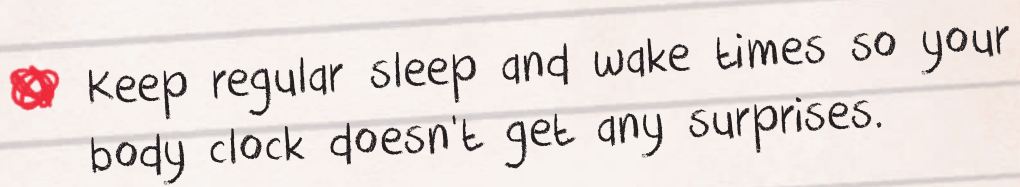 Keep regular sleep and wake times so your
body clock doesn't get any surprises.